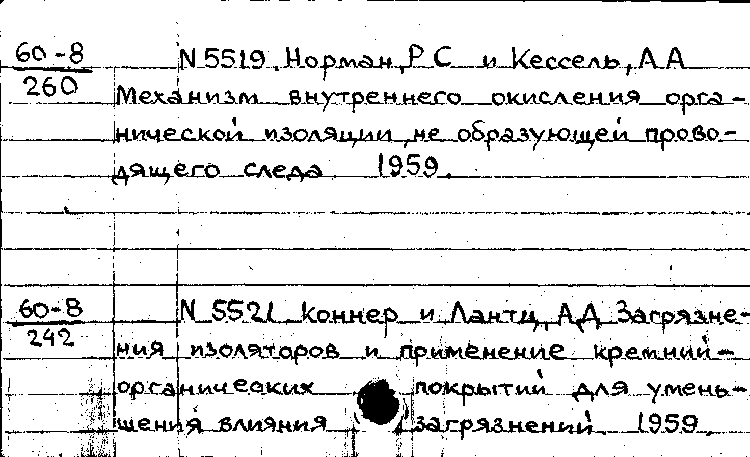 60-8 N 5519. Норман, Р С и Кессель, А А
260
Механизм внутреннего окисления орга-
нической изоляции, не образующей прово-
дящего следа. 1959.
60-8 N 5521 Коннер и Лантц, А.Д. Загрязне-
242
ния изоляторов и применение кремний-
органических покрытий для умень-
шения влияния загрязнений. 1959.